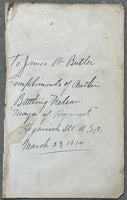 To James H Butler
Compliments of Author
Battling Nelson
"Mayor of Hegewisch"
Hegewisch Ill. U.S.A.
March 23 1914